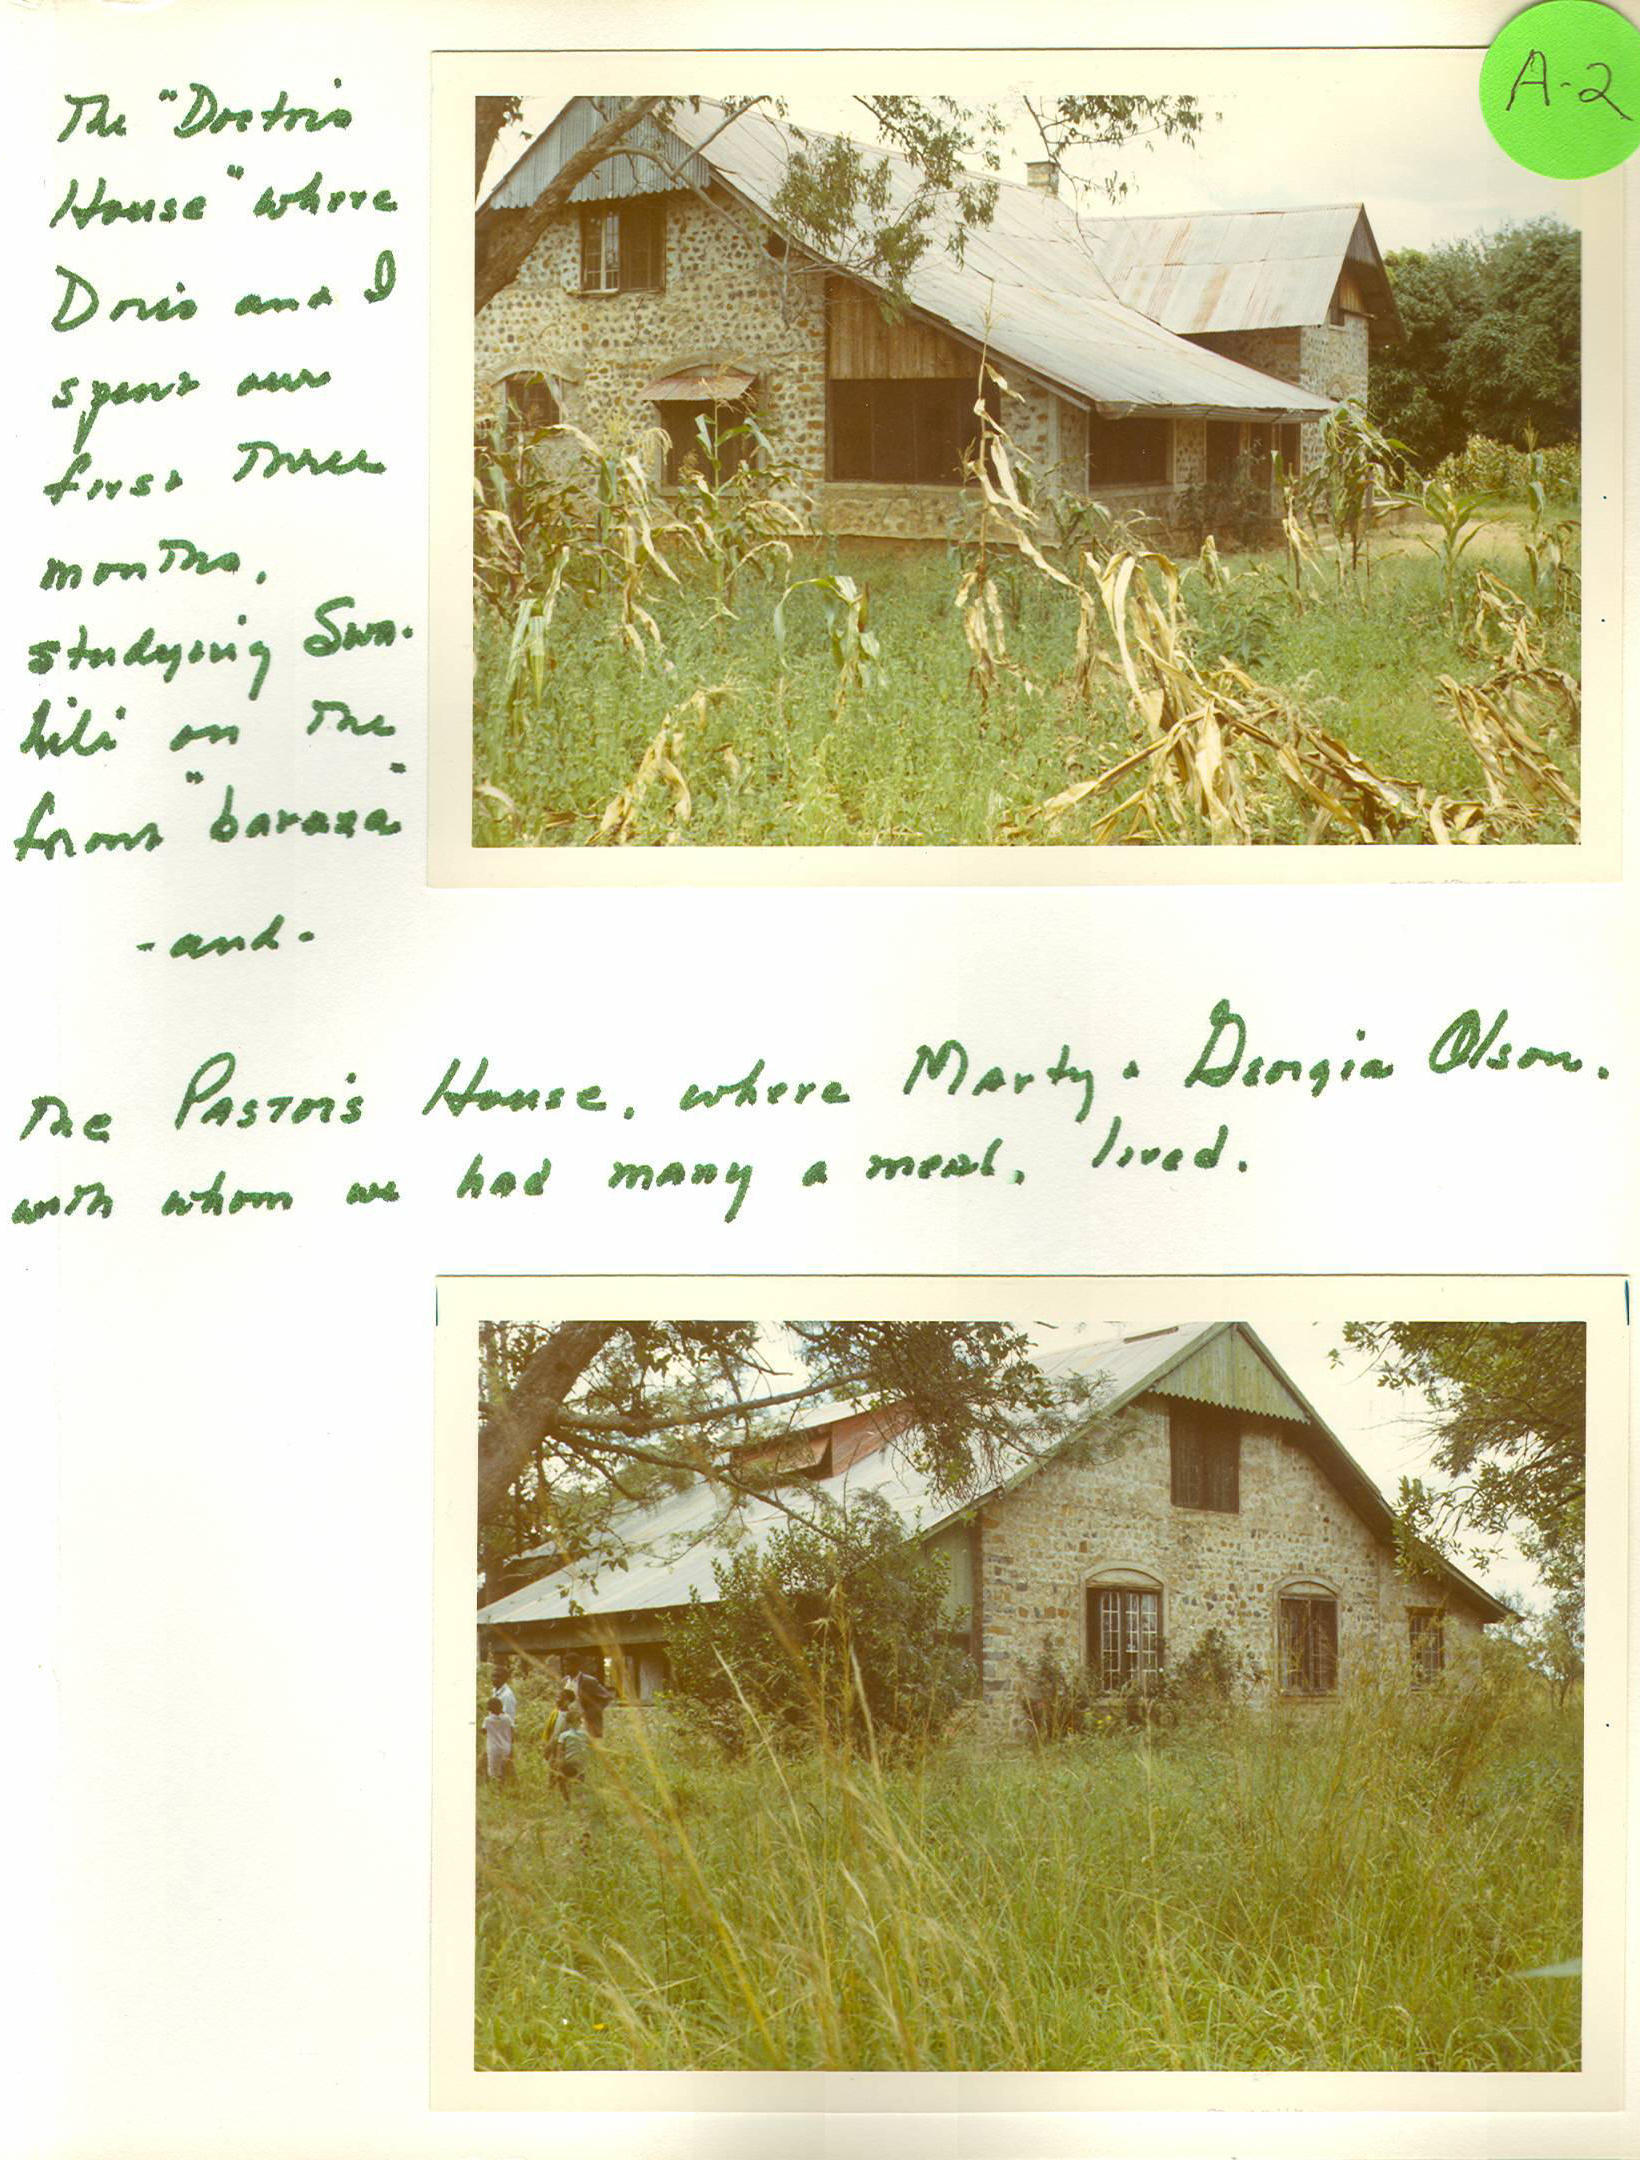 A-2
The "Doctor's
House" where
Doris and I
spent our
first three
months,
studying Swa-
hili on the
front "baraza"
-and-
The Pastor's House, where Marty & Georgia Olson,
with whom we had many a meal, lived.